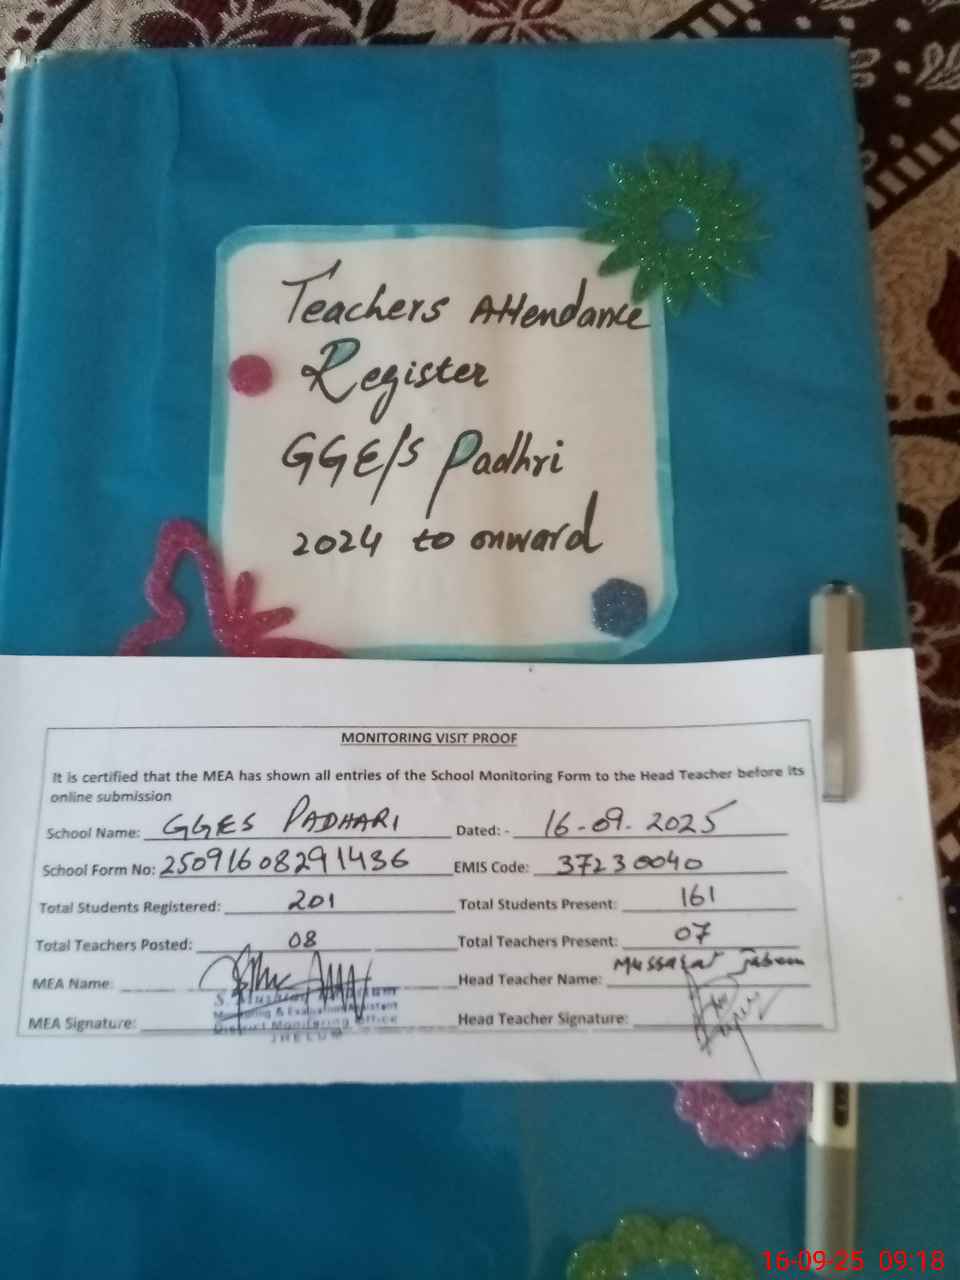 Teachers Attendance
Register
GGE/S Padhri
2024 to onward
MONITORING VISIT PROOF
It is certified that the MEA has shown all entries of the School Monitoring Form to the Head Teacher before its
online submission
School Name: GGES PADHARI Dated: - 16-09-2025
School Form No: 25091608291436 EMIS Code: 37230040
Total Students Registered: 201 Total Students Present: 161
Total Teachers Posted: 08 Total Teachers Present: 07
MEA Name: Head Teacher Name: Mussarat
S. Mushtaq
Monitoring & Evaluation Assistant
MEA Signature: Head Teacher Signature:
District Monitoring Office
JHELUM
16-09-25 09:18